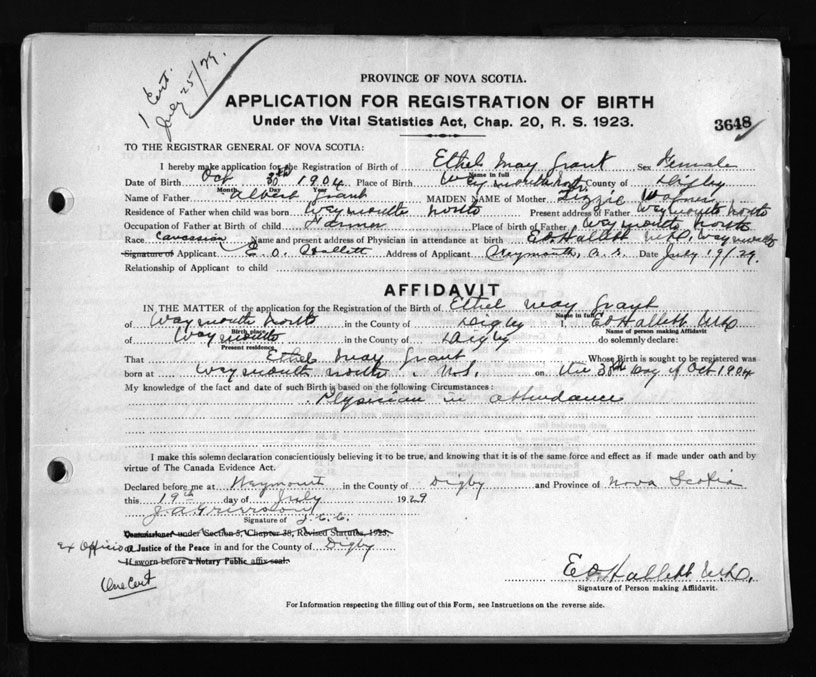 1 Cert.
July 25/29.
PROVINCE OF NOVA SCOTIA.
APPLICATION FOR REGISTRATION OF BIRTH
Under the Vital Statistics Act, Chap. 20, R. S. 1923.
3648
TO THE REGISTRAR GENERAL OF NOVA SCOTIA:
I hereby make application for the Registration of Birth of Ethel May Grant Sex Female
Name in full
Date of Birth Oct 30th 1904 Place of Birth Weymouth North County of Digby
Month Day Year
Name of Father Albert Grant MAIDEN NAME of Mother Lizzie
Residence of Father when child was born Weymouth North Present address of Father Weymouth North
Occupation of Father at Birth of child Farmer Place of birth of Father Weymouth North
Race Caucasian Name and present address of Physician in attendance at birth E.O. Hallett M.D., Weymouth
Signature of Applicant E. O. Hallett Address of Applicant Weymouth, N. S. Date July 19/29.
Relationship of Applicant to child
AFFIDAVIT
IN THE MATTER of the application for the Registration of the Birth of Ethel May Grant
Name in full
of Weymouth North in the County of Digby I, E.O. Hallett M.D.
Birth place Name of person making Affidavit
of Weymouth in the County of Digby do solemnly declare:
Present residence.
That Ethel May Grant Whose Birth is sought to be registered was
born at Weymouth North, N.S. on the 30th Day of Oct 1904
My knowledge of the fact and date of such Birth is based on the following Circumstances:
Physician in attendance
I make this solemn declaration conscientiously believing it to be true, and knowing that it is of the same force and effect as if made under oath and by
virtue of The Canada Evidence Act.
Declared before me at Weymouth in the County of Digby and Province of Nova Scotia
this 19th day of July 1929
Signature of
Commissioner under Section 3, Chapter 38, Revised Statutes, 1923,
Ex Officio a Justice of the Peace in and for the County of Digby
If sworn before a Notary Public affix seal.
One Cert
E.O. Hallett M.D.
Signature of Person making Affidavit.
For Information respecting the filling out of this Form, see Instructions on the reverse side.